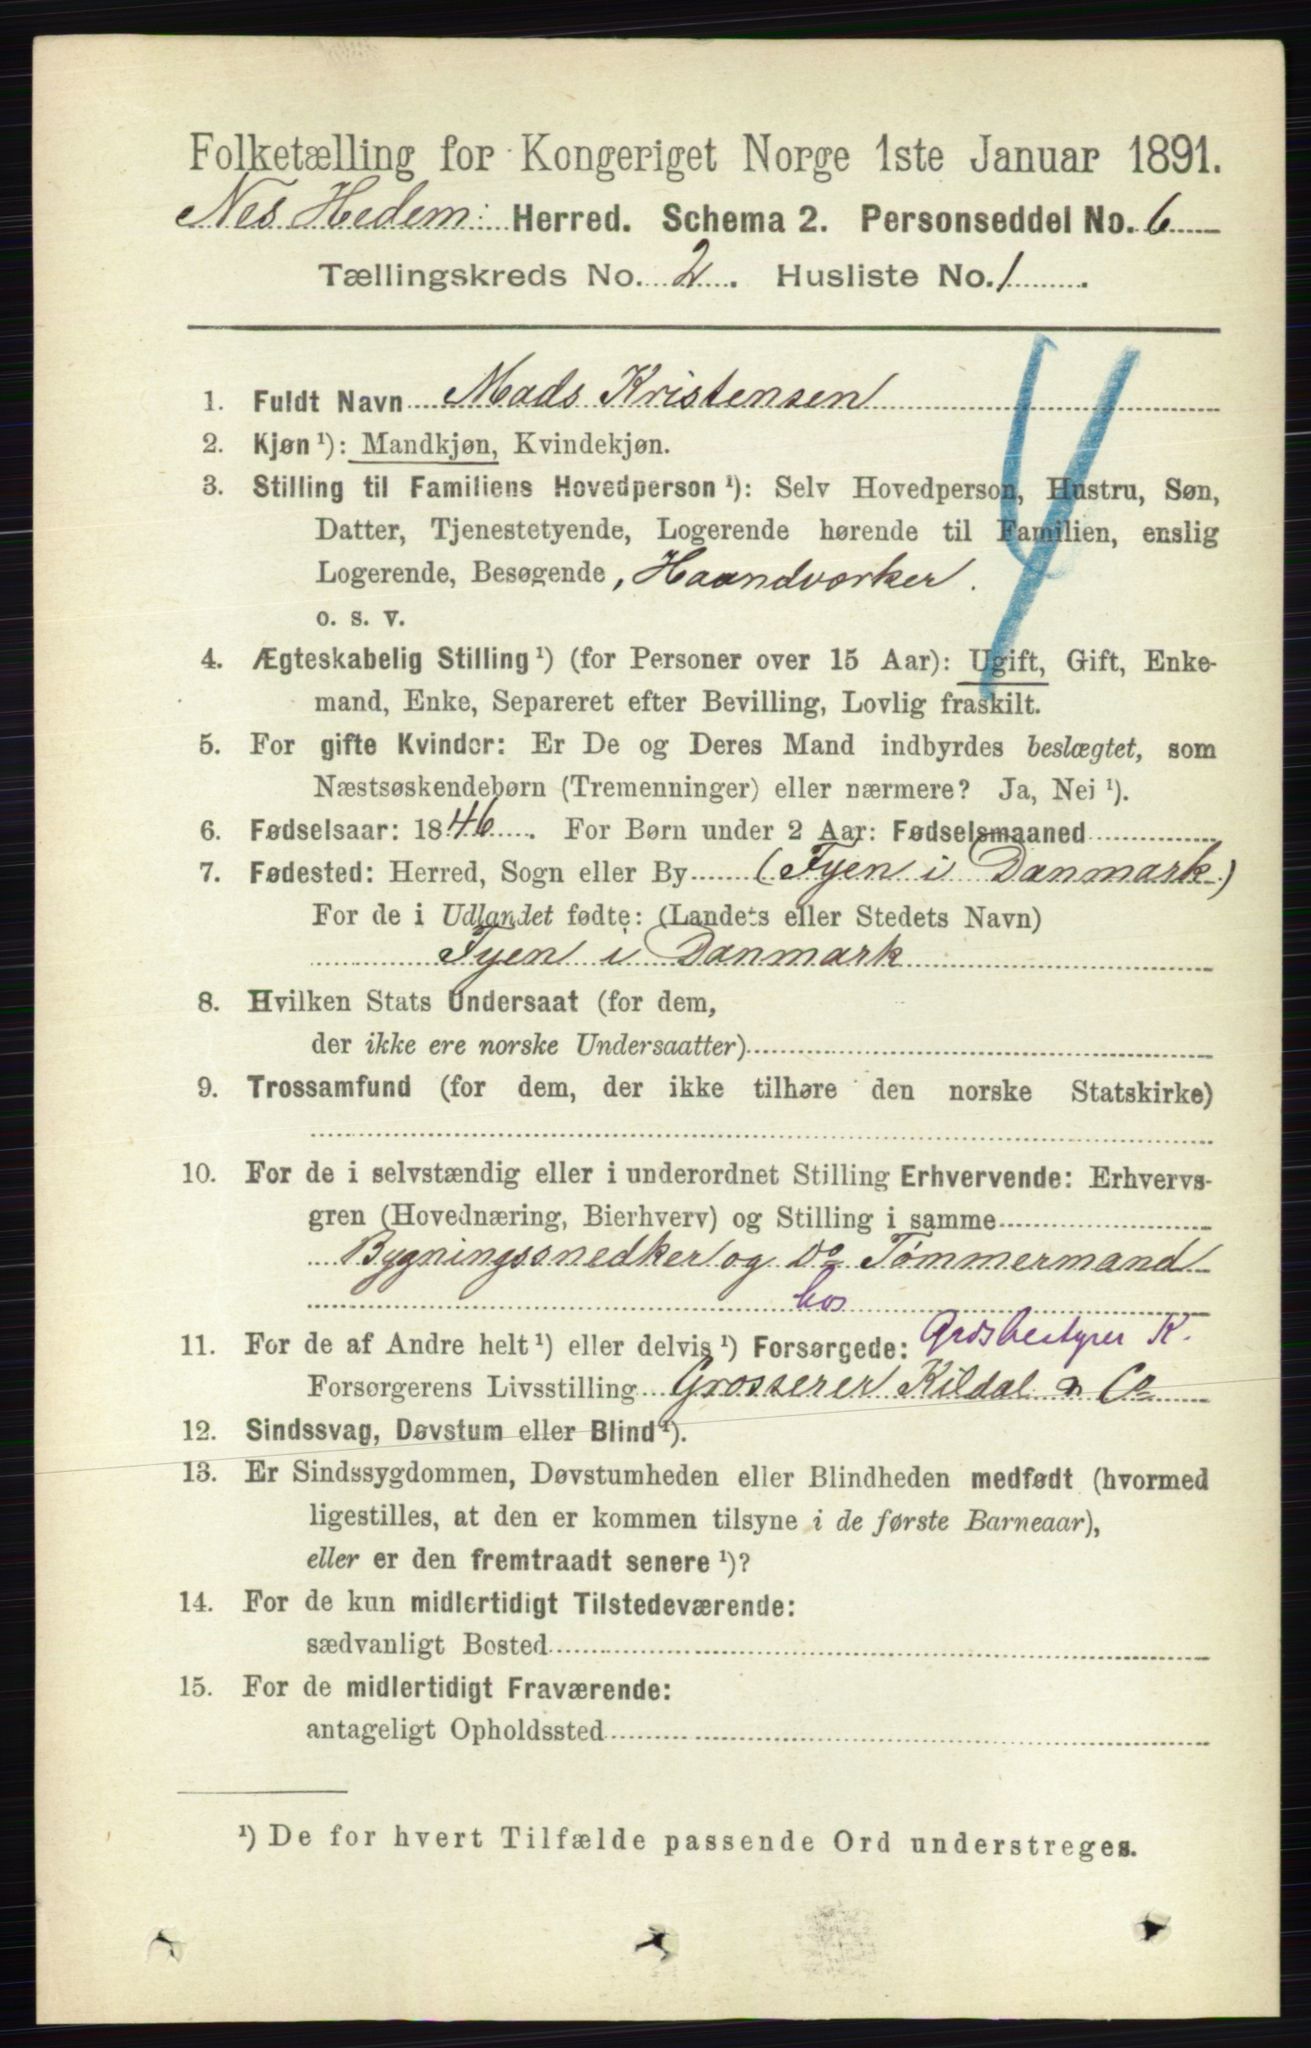 Folketælling for Kongeriget Norge 1ste Januar 1891.
Nes Hedem: Herred. Schema 2. Personseddel No. 6
Tællingskreds No. 2. Husliste No. 1.
1. Fuldt Navn Mads Kristensen
2. Kjøn ¹): Mandkjøn, Kvindekjøn.
3. Stilling til Familiens Hovedperson ¹): Selv Hovedperson, Hustru, Søn,
Datter, Tjenestetyende, Logerende hørende til Familien, enslig
Logerende, Besøgende, Haandværker.
o. s. v.
4. Ægteskabelig Stilling ¹) (for Personer over 15 Aar): Ugift, Gift, Enke-
mand, Enke, Separeret efter Bevilling, Lovlig fraskilt.
5. For gifte Kvinder: Er De og Deres Mand indbyrdes beslægtet, som
Næstsøskendebørn (Tremenninger) eller nærmere? Ja, Nei ¹).
6. Fødselsaar: 1846. For Børn under 2 Aar: Fødselsmaaned
7. Fødested: Herred, Sogn eller By (Fyen i Danmark)
For de i Udlandet fødte: (Landets eller Stedets Navn)
Fyen i Danmark
8. Hvilken Stats Undersaat (for dem,
der ikke ere norske Undersaatter)
9. Trossamfund (for dem, der ikke tilhøre den norske Statskirke)
10. For de i selvstændig eller i underordnet Stilling Erhvervende: Erhvervs-
gren (Hovednæring, Bierhverv) og Stilling i samme
Bygningssnedker og Do Tømmermand
hos
11. For de af Andre helt ¹) eller delvis ¹) Forsørgede: Grdsbestyrer K.
Forsørgerens Livsstilling Grosserer Kildal & Co
12. Sindssvag, Døvstum eller Blind ¹).
13. Er Sindssygdommen, Døvstumheden eller Blindheden medfødt (hvormed
ligestilles, at den er kommen tilsyne i de første Barneaar),
eller er den fremtraadt senere ¹)?
14. For de kun midlertidigt Tilstedeværende:
sædvanligt Bosted
15. For de midlertidigt Fraværende:
antageligt Opholdssted
¹) De for hvert Tilfælde passende Ord understreges.